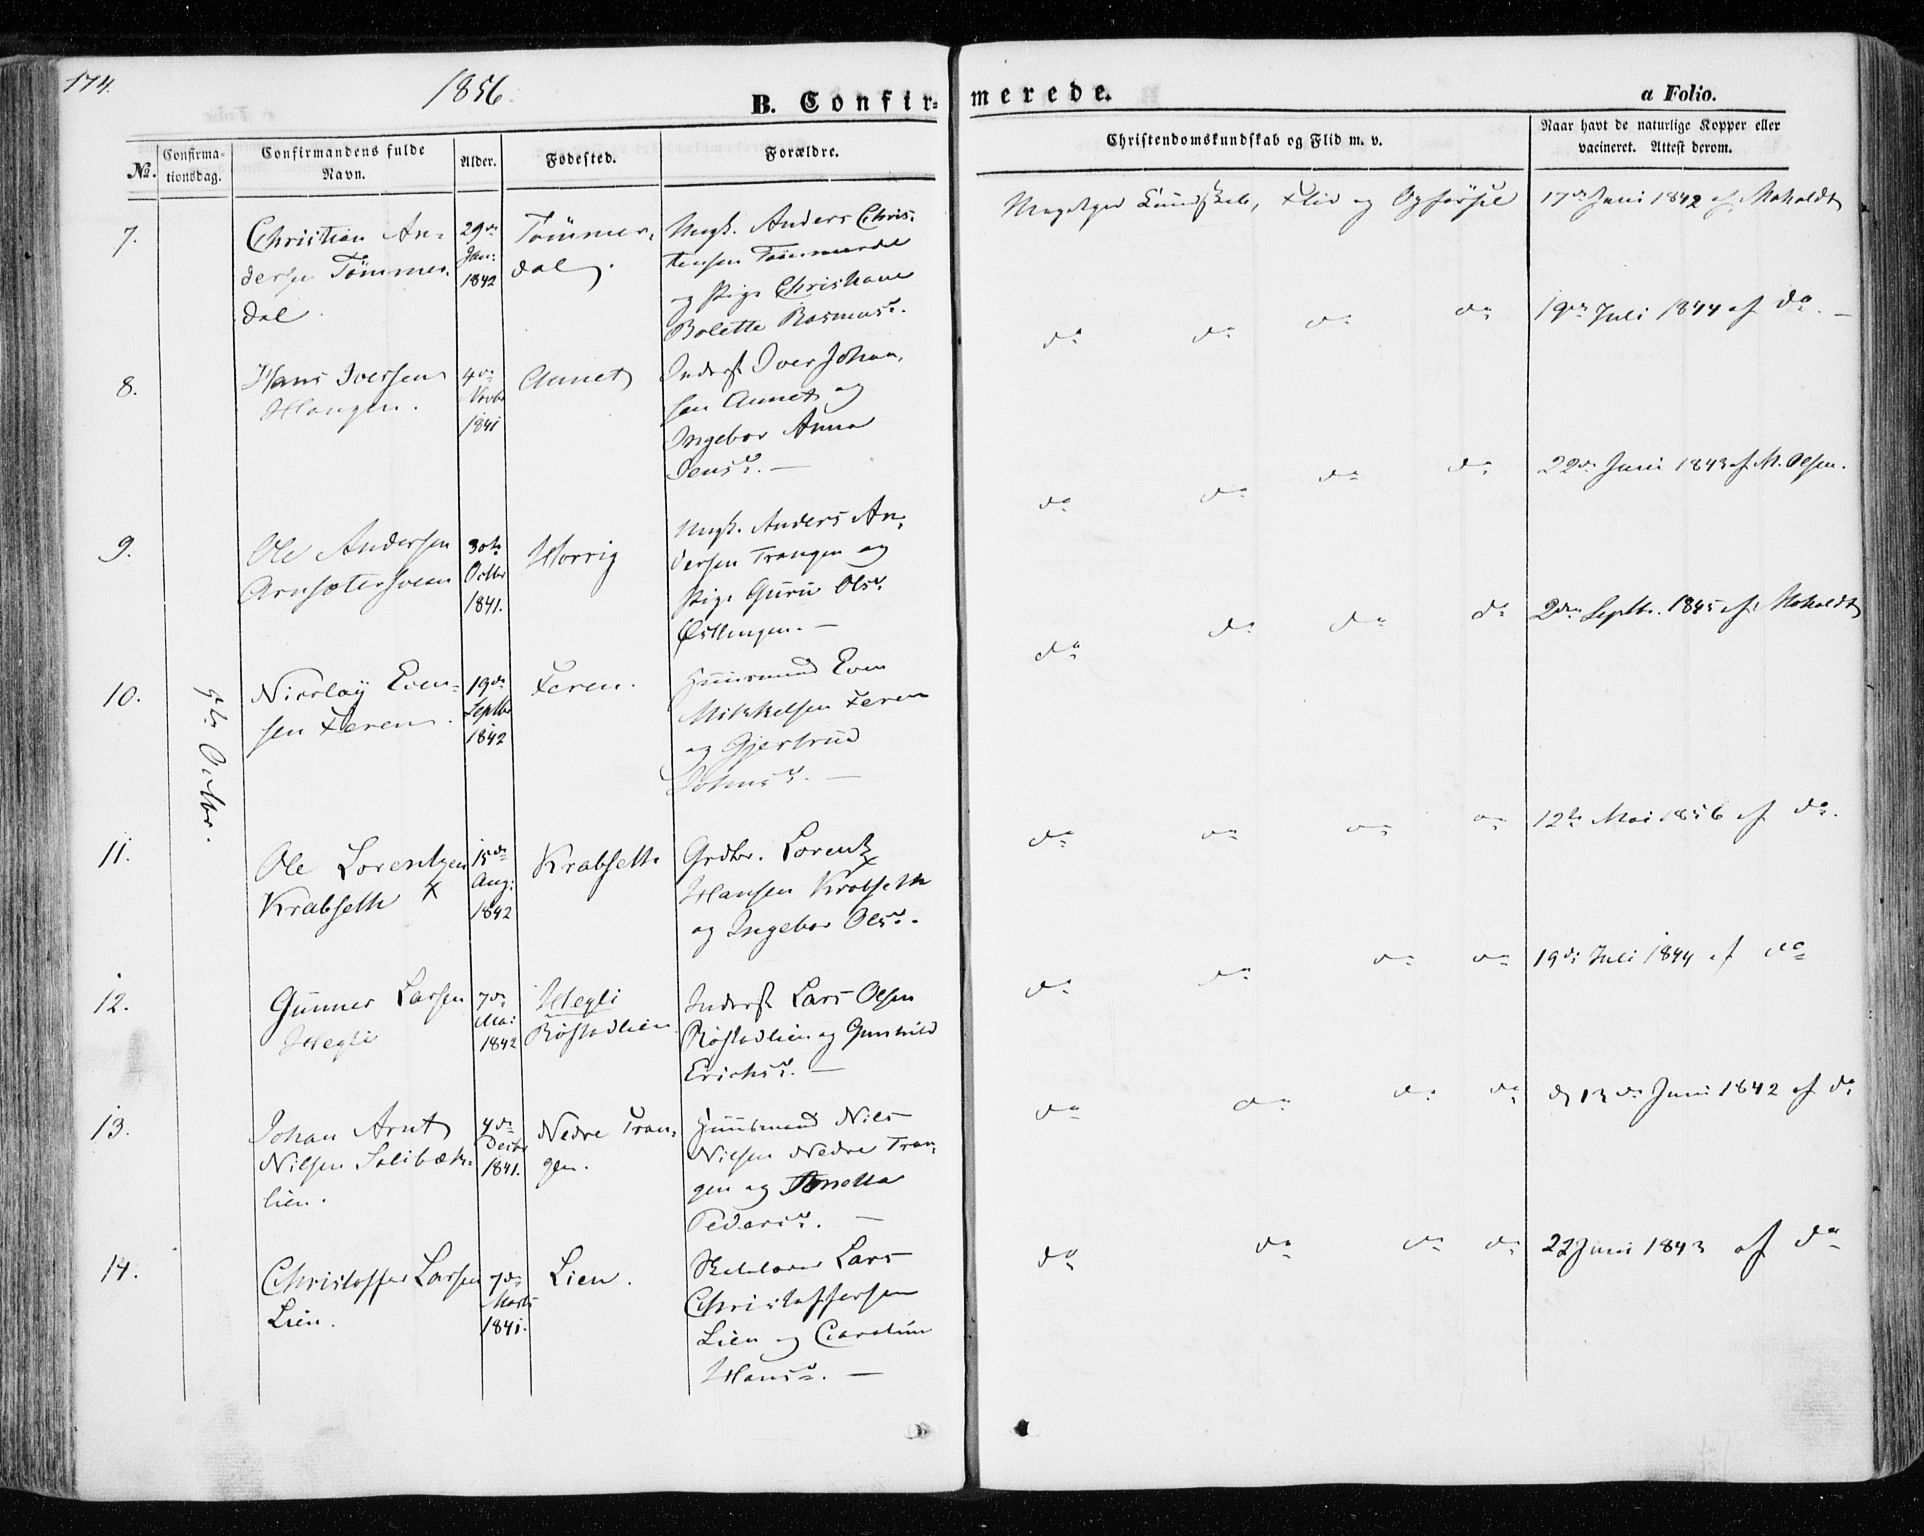 174.
1856.
B. Confir-
merede.
a Folio.
No.
Confirma-
tionsdag.
Confirmandens fulde
Navn.
Alder.
Fødested.
Forældre.
Christendomskundskab og Flid m. v.
Naar havt de naturlige Kopper eller
vacineret. Attest derom.
5te Octbr.
7.
Christian An-
dersen Tømmer-
dal.
29de
Jan:
1842
Tømmer-
dal
Ungk. Anders Chris-
tensen Tømmerdal
og Pige Christiane
Bolette Rasmusd.
Megetgod Kundskab, Flid og Opførsel
17de Juni 1842 af Moholdt
8.
Hans Iversen
Haugen.
4de
Novbr
1841
Aunet
Inderst Iver Johan-
sen Aunet og
Ingebor Anna
Jensd. —
do do do do
19de Juli 1844 af do. —
9.
Ole Andersen
Arnsætersveen
30te
Octbr
1841.
Horrig
Ungk. Anders An-
dersen Trangen og
Pige Guru Olsd.
Østlingen. —
do do do do
22de Juni 1843 af M. Olsen.
10.
Nicolay Even-
sen Feren.
19de
Septbr
1842
Feren.
Huusmand Even
Mikkelsen Feren
og Gjertrud
Johnsd. —
do do do do
2den Septbr. 1845 af Moholdt
11.
Ole Lorentzen
Krabseth x
15de
Aug:
1842
Krabseth
Grdbr. Lorentz
Hansen Krabseth
og Ingebor Olsd.
do do do do
12te Mai 1856 af do.
12.
Gunner Larsen
Hegli
7de
Ma:
1842
Hegli
Røstadlien
Inderst Lars Olsen
Røstadlien og Gunhild
Erichsd. —
do do do do
19de Juli 1844 af do
13.
Johan Arnt
Nilsen Solibæk-
lien.
4de
Decbr
1841.
Nedre Tran-
gen.
Huusmand Nils
Nilsen Nedre Tran-
gen og
Pedersd. —
do do do do
d 13de Juni 1842 af do
14.
Christoffer Larsen
Lien.
7de
Marts
1841.
Lien.
Lars
Christoffersen
Lien og Carolina
Hansd. —
do do do do
22 Juni 1843 af do